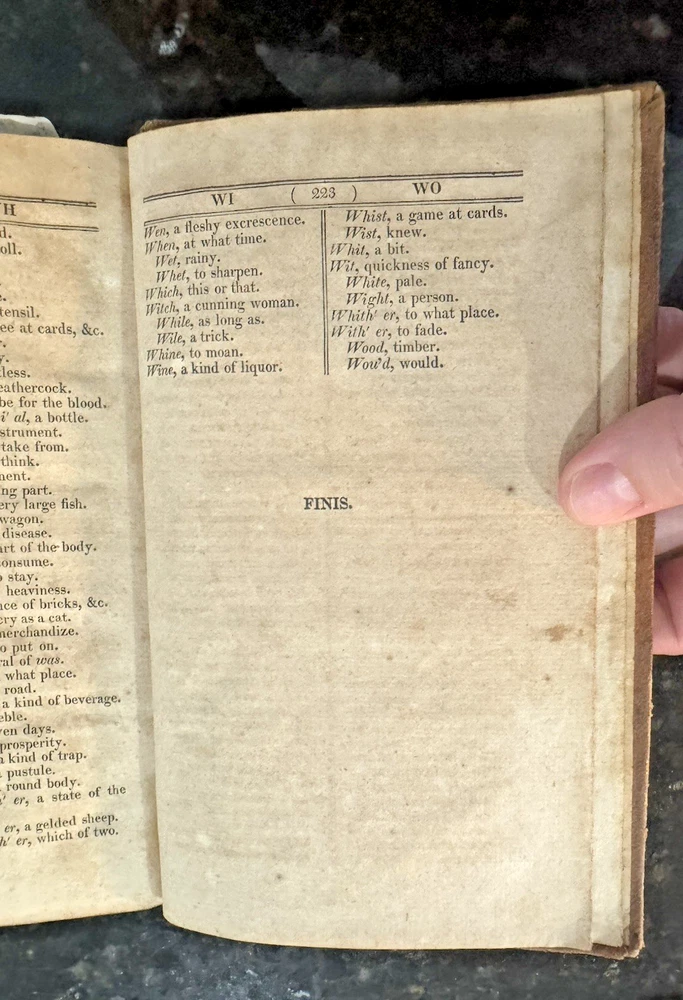 H
d.
oll.
e.
tensil.
ee at cards, &c.
r.
y.
tless.
eathercock.
be for the blood.
i' al, a bottle.
strument.
take from.
think.
nent.
ng part.
ery large fish.
wagon.
disease.
art of the body.
onsume.
o stay.
heaviness.
nce of bricks, &c.
cry as a cat.
nerchandize.
o put on.
ral of was.
what place.
road.
a kind of beverage.
eble.
ven days.
prosperity.
a kind of trap.
pustule.
round body.
h' er, a state of the
er, a gelded sheep.
h' er, which of two.
WI ( 223 ) WO
Wen, a fleshy excrescence.
When, at what time.
Wet, rainy.
Whet, to sharpen.
Which, this or that.
Witch, a cunning woman.
While, as long as.
Wile, a trick.
Whine, to moan.
Wine, a kind of liquor.
Whist, a game at cards.
Wist, knew.
Whit, a bit.
Wit, quickness of fancy.
White, pale.
Wight, a person.
Whith' er, to what place.
With' er, to fade.
Wood, timber.
Wou'd, would.
FINIS.